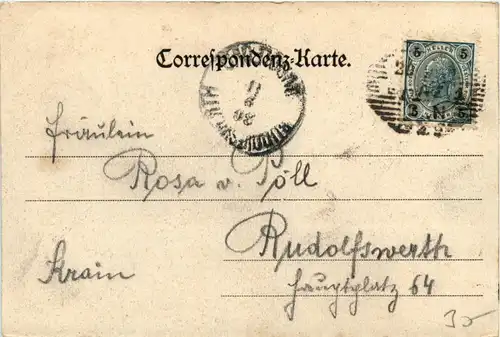 Correspondenz-Karte.
5 5
5 5
Fräulein
Rosa v. Pöll
Rudolfswerth
Krain
Hauptplatz 64